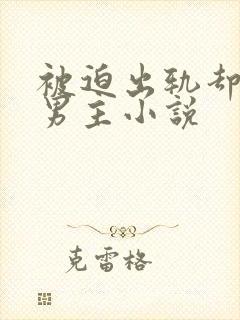 被迫出轨却
男主小说
克雷格